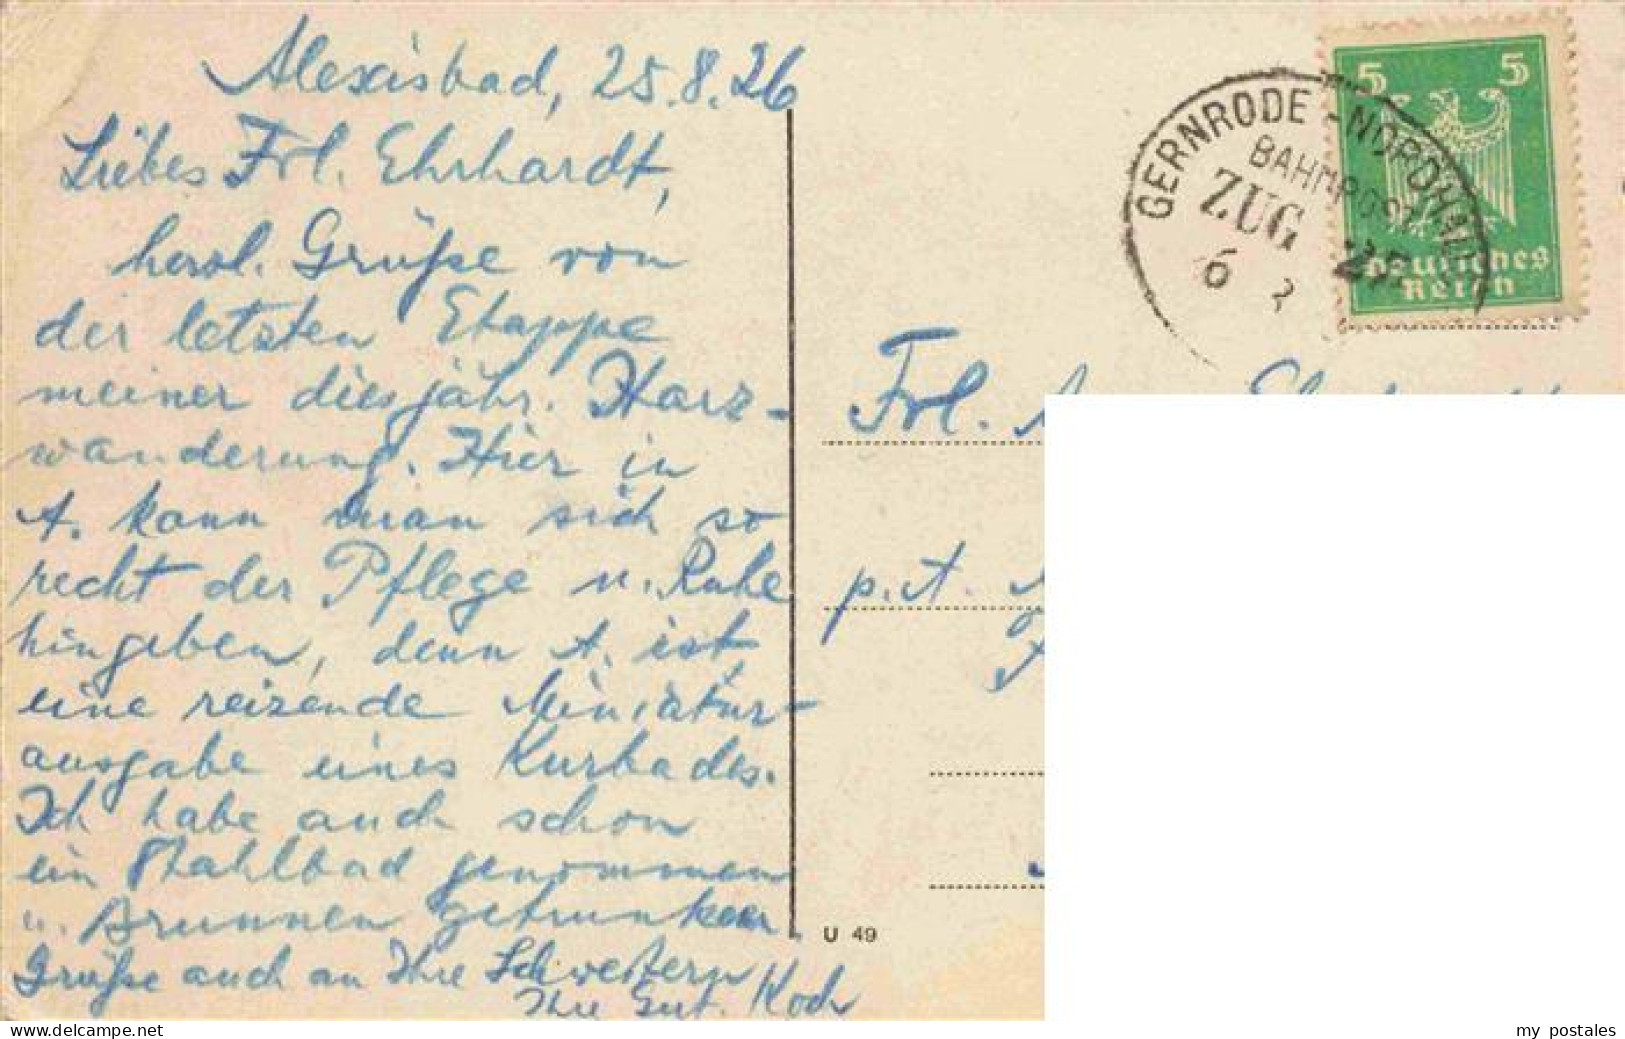 Alexisbad, 25.8.26
Liebes Frl. Ehrhardt,
herzl. Grüße von
der letzten Etappe
meiner diesjähr. Harz-
wanderung. Hier in
A. kann man sich so
recht der Pflege u. Ruhe
hingeben, denn A. ist
eine reizende Miniatur-
ausgabe eines Kurbades.
Ich habe auch schon
ein Stahlbad genommen
u. Brunnen getrunken.
Grüße auch an Ihre Schwestern
Ihre Gert. Koch
GERNRODE - NORDHAU
BAHNPOST
ZUG
6
5 5
Deutsches
Reich
Frl.
p. A.
U 49
my postales